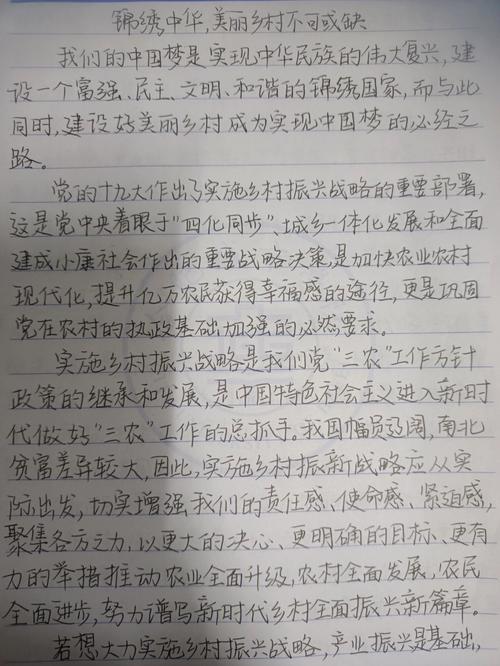 锦绣中华,美丽乡村不可或缺
我们的中国梦是实现中华民族的伟大复兴,建
设一个富强、民主、文明、和谐的锦绣国家,而与此
同时,建设好美丽乡村成为实现中国梦的必经之
路。
党的十九大作出了实施乡村振兴战略的重要部署,
这是党中央着眼于“四化同步”、城乡一体化发展和全面
建成小康社会作出的重要战略决策,是加快农业农村
现代化,提升亿万农民获得幸福感的途径,更是巩固
党在农村的执政基础加强的必然要求。
实施乡村振兴战略是我们党“三农”工作方针
政策的继承和发展,是中国特色社会主义进入新时
代做好“三农”工作的总抓手。我国幅员辽阔,南北
贫富差异较大,因此,实施乡村振新战略应从实
际出发,切实增强我们的责任感、使命感、紧迫感,
聚集各方之力,以更大的决心、更明确的目标、更有
力的举措推动农业全面升级,农村全面发展,农民
全面进步,努力谱写新时代乡村全面振兴新篇章。
若想大力实施乡村振兴战略,产业振兴是基础,